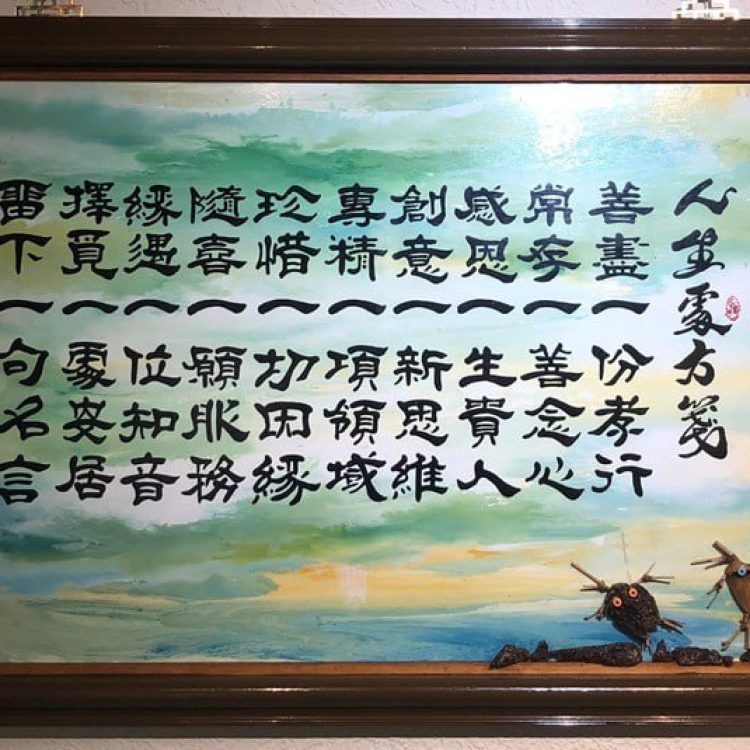 人生處方箋
善盡一份孝行
常存一善念心
感恩一生貴人
創意一新思維
專精一項領域
珍惜一切因緣
隨喜一願服務
緣遇一位知音
擇覓一處安居
留下一句名言